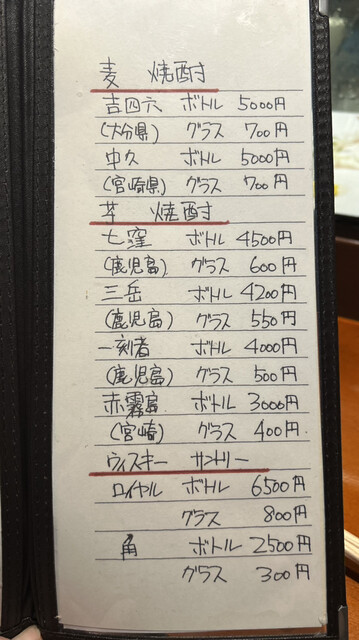 麦 焼酎
吉四六 ボトル 5000円
(大分県) グラス 700円
中久 ボトル 5000円
(宮崎県) グラス 700円
芋 焼酎
七窪 ボトル 4500円
(鹿児島) グラス 600円
三岳 ボトル 4200円
(鹿児島) グラス 550円
一刻者 ボトル 4000円
(鹿児島) グラス 500円
赤霧島 ボトル 3000円
(宮崎) グラス 400円
ウィスキー サントリー
ロイヤル ボトル 6500円
グラス 800円
角 ボトル 2500円
グラス 300円